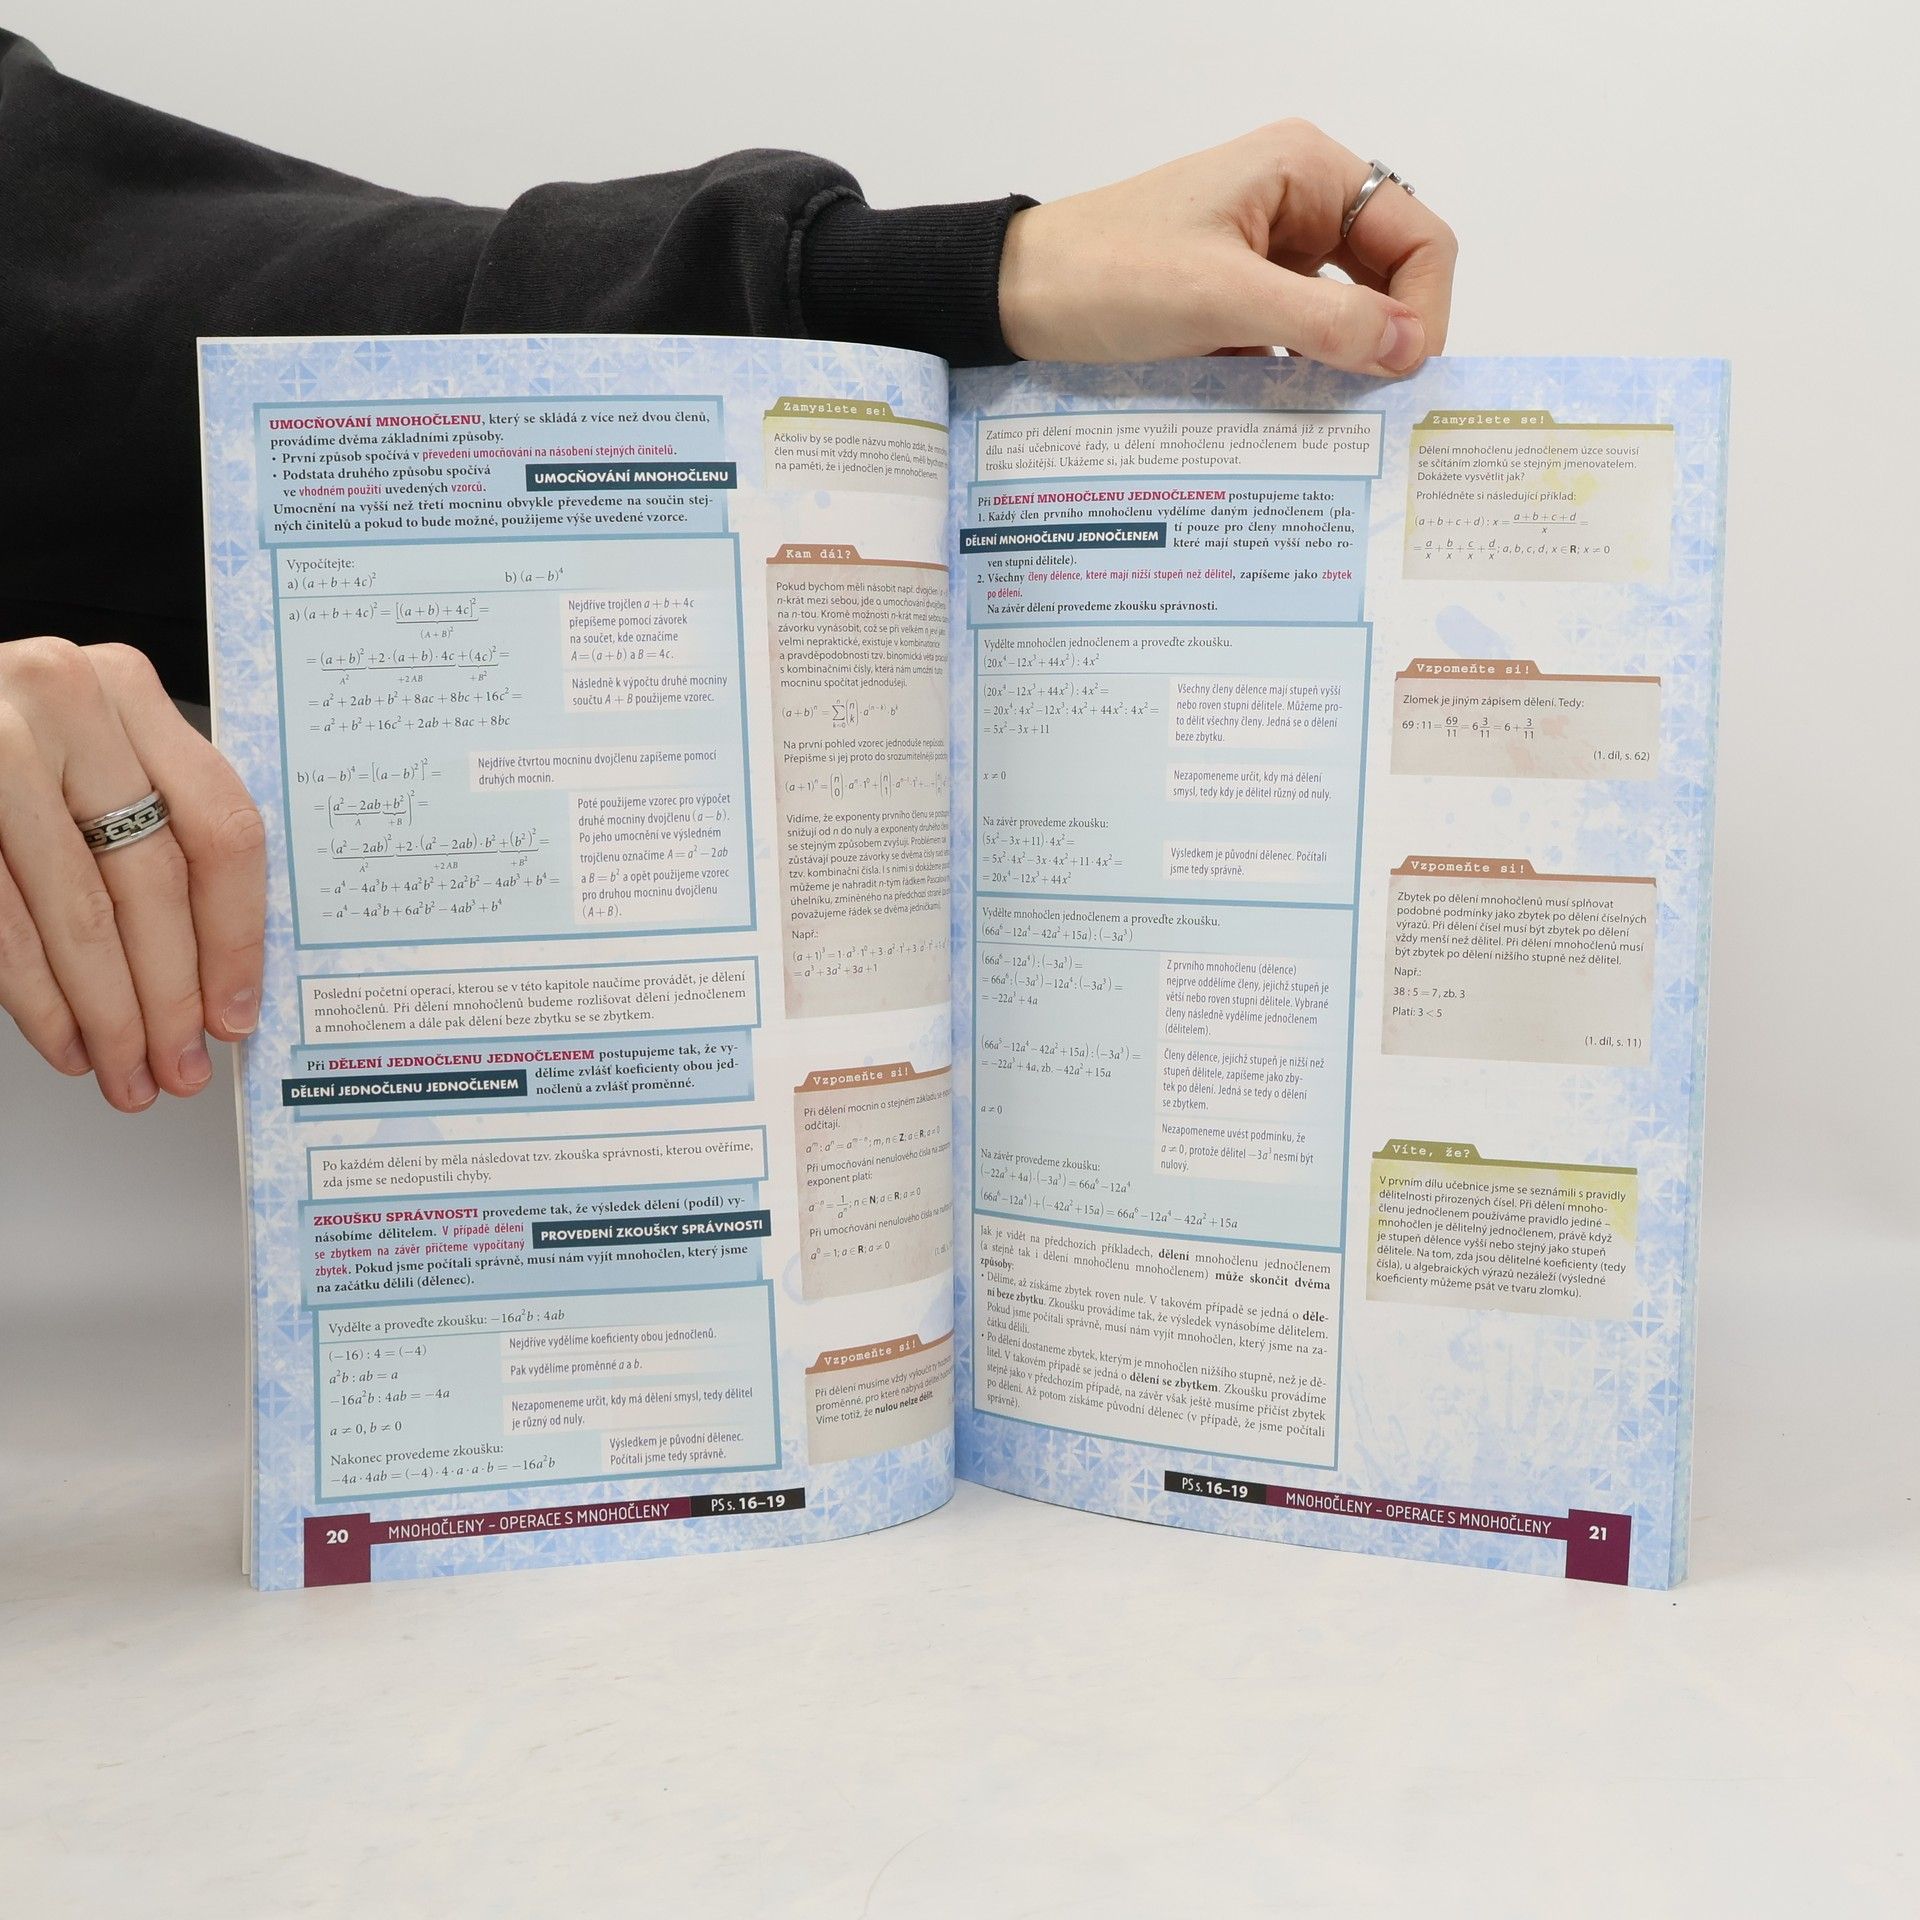 UMOCŇOVÁNÍ MNOHOČLENU, který se skládá z více než dvou členů,
provádíme dvěma základními způsoby.
• První způsob spočívá v převedení umocňování na násobení stejných činitelů.
• Podstata druhého způsobu spočívá
ve vhodném použití uvedených vzorců.
UMOCŇOVÁNÍ MNOHOČLENU
Umocnění na vyšší než třetí mocninu obvykle převedeme na součin stej-
ných činitelů a pokud to bude možné, použijeme výše uvedené vzorce.
Vypočítejte:
a) (a + b + 4c)² b) (a − b)⁴
a) (a + b + 4c)² = [(a + b) + 4c]² =
(A + B)²
= (a + b)² + 2 · (a + b) · 4c + (4c)² =
A² +2AB +B²
= a² + 2ab + b² + 8ac + 8bc + 16c² =
= a² + b² + 16c² + 2ab + 8ac + 8bc
Nejdříve trojčlen a + b + 4c
přepíšeme pomocí závorek
na součet, kde označíme
A = (a + b) a B = 4c.
Následně k výpočtu druhé mocniny
součtu A + B použijeme vzorec.
b) (a − b)⁴ = [(a − b)²]² =
Nejdříve čtvrtou mocninu dvojčlenu zapíšeme pomocí
druhých mocnin.
= (a² − 2ab + b²)² =
A +B
= (a² − 2ab)² + 2 · (a² − 2ab) · b² + (b²)² =
A² +2AB +B²
= a⁴ − 4a³b + 4a²b² + 2a²b² − 4ab³ + b⁴ =
= a⁴ − 4a³b + 6a²b² − 4ab³ + b⁴
Poté použijeme vzorec pro výpočet
druhé mocniny dvojčlenu (a − b).
Po jeho umocnění ve výsledném
trojčlenu označíme A = a² − 2ab
a B = b² a opět použijeme vzorec
pro druhou mocninu dvojčlenu
(A + B).
Poslední početní operací, kterou se v této kapitole naučíme provádět, je dělení
mnohočlenů. Při dělení mnohočlenů budeme rozlišovat dělení jednočlenem
a mnohočlenem a dále pak dělení beze zbytku se se zbytkem.
Při DĚLENÍ JEDNOČLENU JEDNOČLENEM postupujeme tak, že vy-
dělíme zvlášť koeficienty obou jed-
nočlenů a zvlášť proměnné.
DĚLENÍ JEDNOČLENU JEDNOČLENEM
Po každém dělení by měla následovat tzv. zkouška správnosti, kterou ověříme,
zda jsme se nedopustili chyby.
ZKOUŠKU SPRÁVNOSTI provedeme tak, že výsledek dělení (podíl) vy-
násobíme dělitelem. V případě dělení
se zbytkem na závěr přičteme vypočítaný
PROVEDENÍ ZKOUŠKY SPRÁVNOSTI
zbytek. Pokud jsme počítali správně, musí nám vyjít mnohočlen, který jsme
na začátku dělili (dělenec).
Vydělte a proveďte zkoušku: −16a²b : 4ab
(−16) : 4 = (−4)
a²b : ab = a
−16a²b : 4ab = −4a
a ≠ 0, b ≠ 0
Nejdříve vydělíme koeficienty obou jednočlenů.
Pak vydělíme proměnné a a b.
Nezapomeneme určit, kdy má dělení smysl, tedy dělitel
je různý od nuly.
Nakonec provedeme zkoušku:
−4a · 4ab = (−4) · 4 · a · a · b = −16a²b
Výsledkem je původní dělenec.
Počítali jsme tedy správně.
Zamyslete se!
Ačkoliv by se podle názvu mohlo zdát, že
člen musí mít vždy mnoho členů, měli bychom
na paměti, že i jednočlen je mnohočlenem.
Kam dál?
Pokud bychom měli násobit např. dvojčlen
n-krát mezi sebou, jde o umocňování dvojčlenu
na n-tou. Kromě možnosti n-krát mezi sebou
závorku vynásobit, což se při velkém n jeví jako
velmi nepraktické, existuje v kombinatorice
a pravděpodobnosti tzv. binomická věta
s kombinačními čísly, která nám umožní tuto
mocninu spočítat jednodušeji.
(a + b)ⁿ =
Na první pohled vzorec jednoduše nepůsobí.
Přepíšme si jej proto do srozumitelnější
(a + 1)ⁿ =
Vidíme, že exponenty prvního členu se postupně
snižují od n do nuly a exponenty druhého
se stejným způsobem zvyšují. Problémem tak
zůstávají pouze závorky se dvěma čísly
tzv. kombinační čísla. I s nimi si dokážeme
můžeme je nahradit n-tým řádkem
úhelníku, zmíněného na předchozí straně
považujeme řádek se dvěma jedničkami).
Např.:
(a + 1)³ = 1 · a³ · 1⁰ + 3 · a² · 1¹ + 3 · a¹ · 1² +
= a³ + 3a² + 3a + 1
Vzpomeňte si!
Při dělení mocnin o stejném základu se
odčítají.
aᵐ : aⁿ = aᵐ⁻ⁿ; m, n ∈ Z; a ∈ R; a ≠ 0
Při umocňování nenulového čísla na záporný
exponent platí:
a⁻ⁿ = 1/aⁿ; n ∈ N; a ∈ R; a ≠ 0
Při umocňování nenulového čísla na
a⁰ = 1; a ∈ R; a ≠ 0
Vzpomeňte si!
Při dělení musíme vždy vyloučit ty
proměnné, pro které nabývá dělitel
Víme totiž, že nulou nelze dělit.
20
MNOHOČLENY – OPERACE S MNOHOČLENY
PS s. 16–19
Zatímco při dělení mocnin jsme využili pouze pravidla známá již z prvního
dílu naší učebnicové řady, u dělení mnohočlenu jednočlenem bude postup
trošku složitější. Ukážeme si, jak budeme postupovat.
Při DĚLENÍ MNOHOČLENU JEDNOČLENEM postupujeme takto:
1. Každý člen prvního mnohočlenu vydělíme daným jednočlenem (pla-
tí pouze pro členy mnohočlenu,
DĚLENÍ MNOHOČLENU JEDNOČLENEM
které mají stupeň vyšší nebo ro-
ven stupni dělitele).
2. Všechny členy dělence, které mají nižší stupeň než dělitel, zapíšeme jako zbytek
po dělení.
Na závěr dělení provedeme zkoušku správnosti.
Vydělte mnohočlen jednočlenem a proveďte zkoušku.
(20x⁴ − 12x³ + 44x²) : 4x²
(20x⁴ − 12x³ + 44x²) : 4x² =
= 20x⁴ : 4x² − 12x³ : 4x² + 44x² : 4x² =
= 5x² − 3x + 11
Všechny členy dělence mají stupeň vyšší
nebo roven stupni dělitele. Můžeme pro-
to dělit všechny členy. Jedná se o dělení
beze zbytku.
x ≠ 0
Nezapomeneme určit, kdy má dělení
smysl, tedy kdy je dělitel různý od nuly.
Na závěr provedeme zkoušku:
(5x² − 3x + 11) · 4x² =
= 5x² · 4x² − 3x · 4x² + 11 · 4x² =
= 20x⁴ − 12x³ + 44x²
Výsledkem je původní dělenec. Počítali
jsme tedy správně.
Vydělte mnohočlen jednočlenem a proveďte zkoušku.
(66a⁶ − 12a⁴ − 42a² + 15a) : (−3a³)
(66a⁶ − 12a⁴) : (−3a³) =
= 66a⁶ : (−3a³) − 12a⁴ : (−3a³) =
= −22a³ + 4a
Z prvního mnohočlenu (dělence)
nejprve oddělíme členy, jejichž stupeň je
větší nebo roven stupni dělitele. Vybrané
členy následně vydělíme jednočlenem
(dělitelem).
(66a⁶ − 12a⁴ − 42a² + 15a) : (−3a³) =
= −22a³ + 4a, zb. −42a² + 15a
Členy dělence, jejichž stupeň je nižší než
stupeň dělitele, zapíšeme jako zby-
tek po dělení. Jedná se tedy o dělení
se zbytkem.
a ≠ 0
Nezapomeneme uvést podmínku, že
a ≠ 0, protože dělitel −3a³ nesmí být
nulový.
Na závěr provedeme zkoušku:
(−22a³ + 4a) · (−3a³) = 66a⁶ − 12a⁴
(66a⁶ − 12a⁴) + (−42a² + 15a) = 66a⁶ − 12a⁴ − 42a² + 15a
Jak je vidět na předchozích příkladech, dělení mnohočlenu jednočlenem
(a stejně tak i dělení mnohočlenu mnohočlenem) může skončit dvěma
způsoby:
• Dělíme, až získáme zbytek roven nule. V takovém případě se jedná o děle-
ní beze zbytku. Zkoušku provádíme tak, že výsledek vynásobíme dělitelem.
Pokud jsme počítali správně, musí nám vyjít mnohočlen, který jsme na za-
čátku dělili.
• Po dělení dostaneme zbytek, kterým je mnohočlen nižšího stupně, než je dě-
litel. V takovém případě se jedná o dělení se zbytkem. Zkoušku provádíme
stejně jako v předchozím případě, na závěr však ještě musíme přičíst zbytek
po dělení. Až potom získáme původní dělenec (v případě, že jsme počítali
správně).
Zamyslete se!
Dělení mnohočlenu jednočlenem úzce souvisí
se sčítáním zlomků se stejným jmenovatelem.
Dokážete vysvětlit jak?
Prohlédněte si následující příklad:
(a + b + c + d) : x = (a + b + c + d)/x =
= a/x + b/x + c/x + d/x; a, b, c, d, x ∈ R; x ≠ 0
Vzpomeňte si!
Zlomek je jiným zápisem dělení. Tedy:
69 : 11 = 69/11 = 6 3/11 = 6 + 3/11
(1. díl, s. 62)
Vzpomeňte si!
Zbytek po dělení mnohočlenů musí splňovat
podobné podmínky jako zbytek po dělení číselných
výrazů. Při dělení čísel musí být zbytek po dělení
vždy menší než dělitel. Při dělení mnohočlenů musí
být zbytek po dělení nižšího stupně než dělitel.
Např.:
38 : 5 = 7, zb. 3
Platí: 3 < 5
(1. díl, s. 11)
Víte, že?
V prvním dílu učebnice jsme se seznámili s pravidly
dělitelnosti přirozených čísel. Při dělení mnoho-
členu jednočlenem používáme pravidlo jediné –
mnohočlen je dělitelný jednočlenem, právě když
je stupeň dělence vyšší nebo stejný jako stupeň
dělitele. Na tom, zda jsou dělitelné koeficienty (tedy
čísla), u algebraických výrazů nezáleží (výsledné
koeficienty můžeme psát ve tvaru zlomku).
PS s. 16–19
MNOHOČLENY – OPERACE S MNOHOČLENY
21